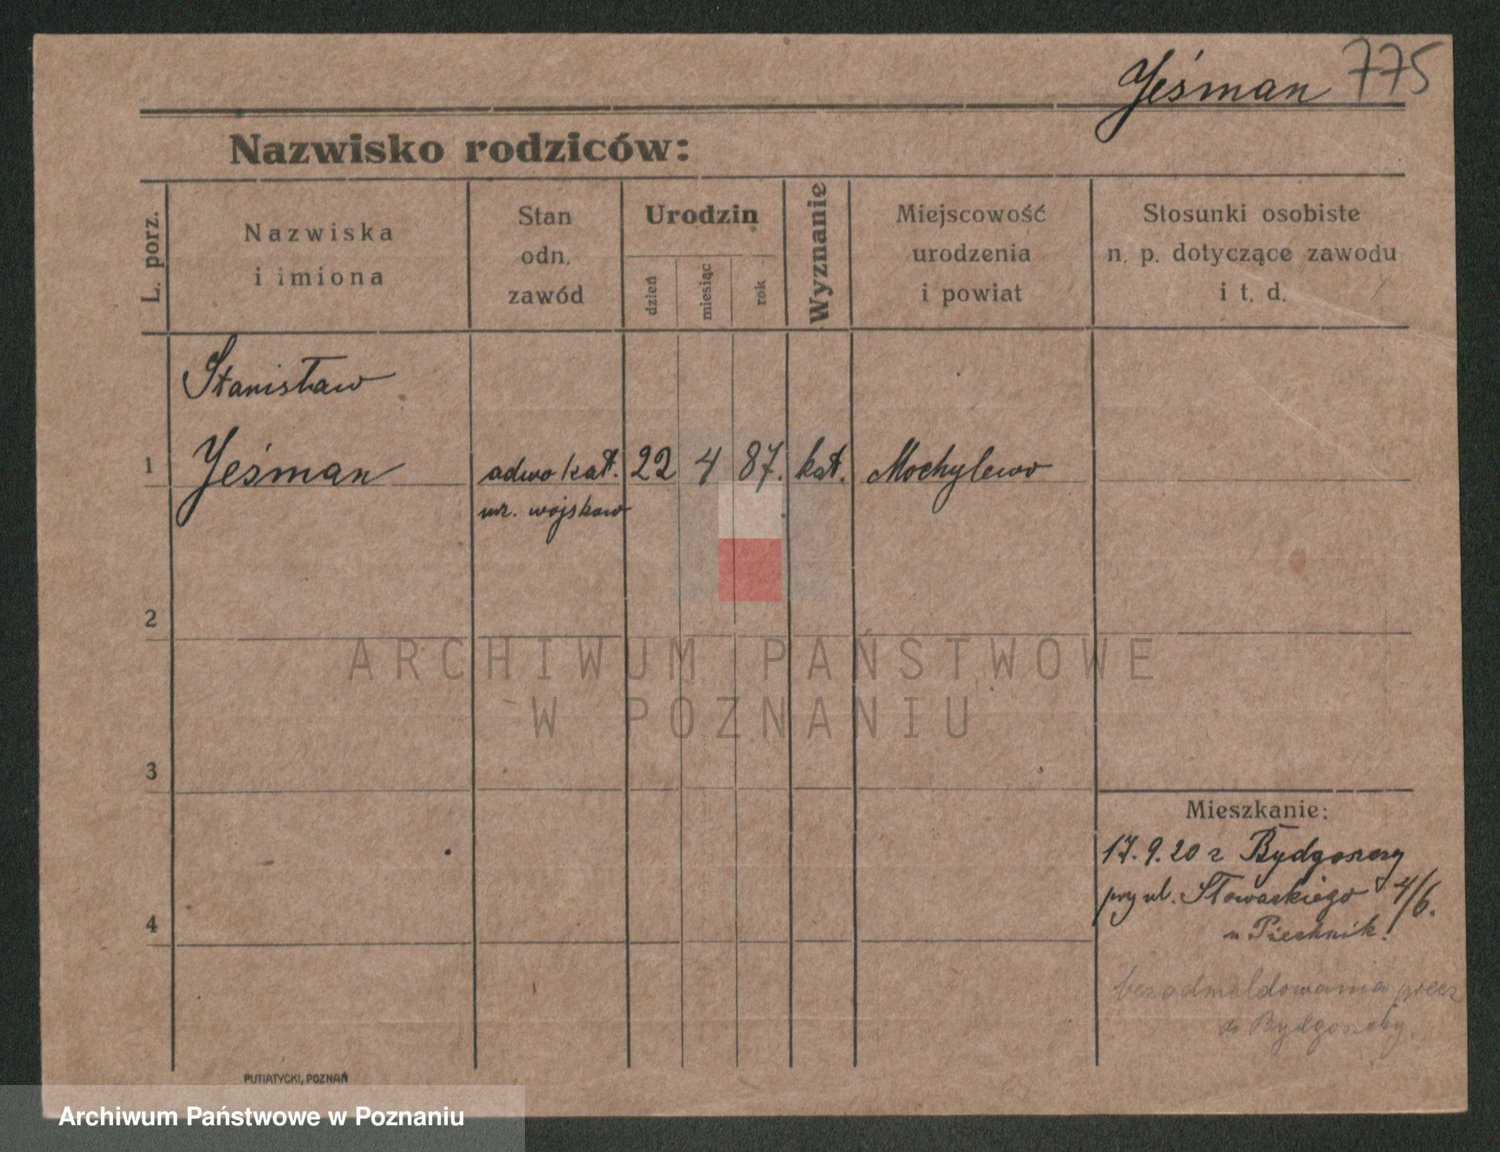 Jeśman 775
Nazwisko rodziców:
L. porz.
Nazwiska
i imiona
Stan
odn.
zawód
Urodzin
dzień
miesiąc
rok
Wyznanie
Miejscowość
urodzenia
i powiat
Stosunki osobiste
n. p. dotyczące zawodu
i t. d.
Stanisław
1 Jeśman adwokat. 22 4 87. kat. Mochylewo
urz. wojskow
2
3
4
Mieszkanie:
17.9.20 z Bydgoszczy
przy ul. Słowackiego 4/6.
u Piechnik.
bez odmeldowania precz
do Bydgoszczy.
PUTIATYCKI, POZNAŃ
ARCHIWUM PAŃSTWOWE
W POZNANIU
Archiwum Państwowe w Poznaniu